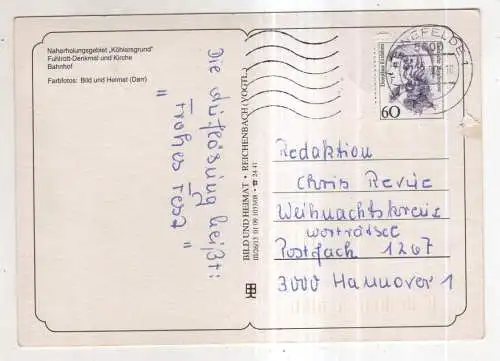 Naherholungsgebiet „Köhlersgrund"
Fuhlrott-Denkmal und Kirche
Bahnhof
Farbfotos: Bild und Heimat (Darr)
Die Auflösung heißt:
„ Frohes Fest "
BILD UND HEIMAT · REICHENBACH (VOGTL.)
Deutsche Bundespost
60
5600
Redaktion
Chris Revue
Weihnachtskreuz
worträtsel
Postfach 1267
3000 Hannover 1